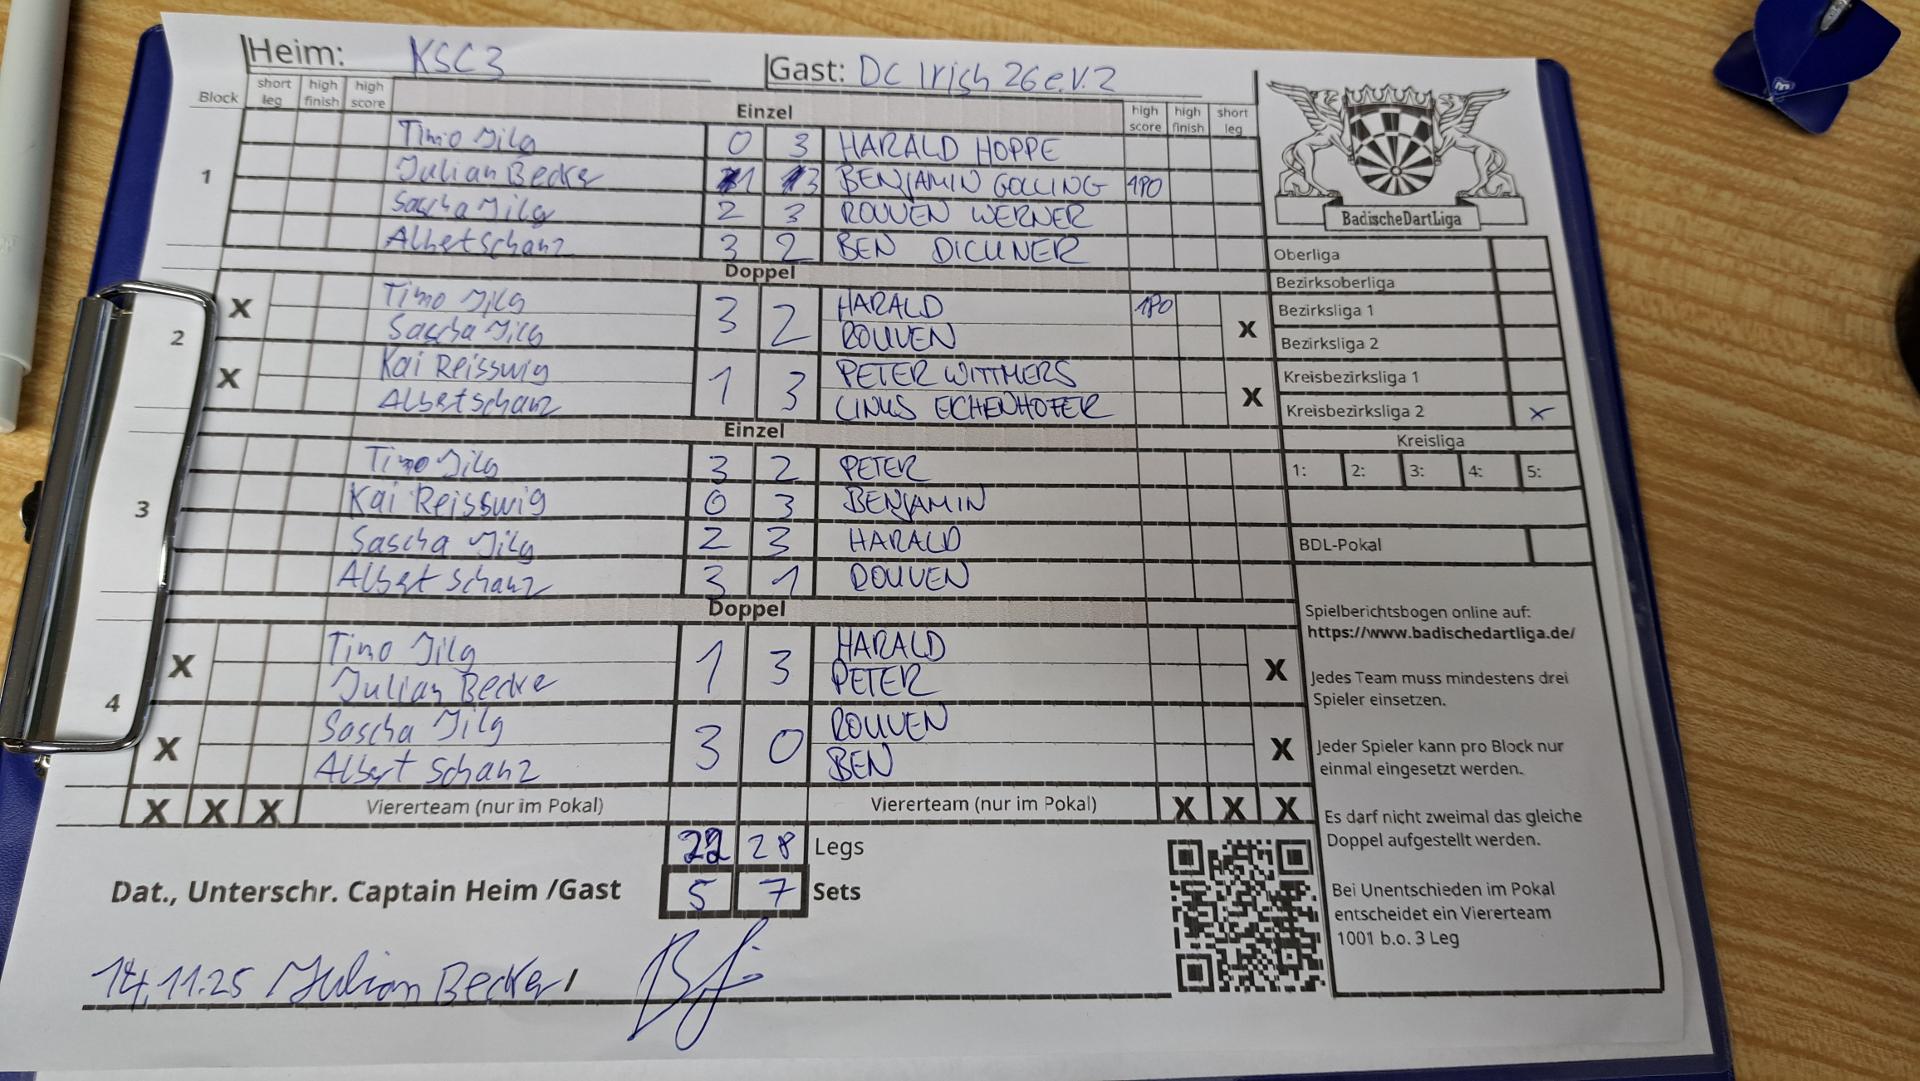 Heim: KSC3 Gast: DC Irish 26 e.V. 2
Block short leg high finish high score Einzel high score high finish short leg
1
Timo Jilg 0 3 HARALD HOPPE
Julian Becker 1 3 BENJAMIN GOLLING 180
Sascha Jilg 2 3 ROUVEN WERNER
Albert Schanz 3 2 BEN DICHNER
Doppel
2
X Timo Jilg 3 2 HARALD 180 X
Sascha Jilg ROUVEN
X Kai Reisswig 1 3 PETER WITTMERS X
Albert Schanz LINUS EICHENHOFER
Einzel
3
Timo Jilg 3 2 PETER
Kai Reisswig 0 3 BENJAMIN
Sascha Jilg 2 3 HARALD
Albert Schanz 3 1 ROUVEN
Doppel
4
X Timo Jilg 1 3 HARALD X
Julian Becker PETER
X Sascha Jilg 3 0 ROUVEN X
Albert Schanz BEN
X X X Viererteam (nur im Pokal) Viererteam (nur im Pokal) X X X
22 28 Legs
Dat., Unterschr. Captain Heim /Gast 5 7 Sets
14.11.25 Julian Becker /
BadischeDartLiga
Oberliga
Bezirksoberliga
Bezirksliga 1
Bezirksliga 2
Kreisbezirksliga 1
Kreisbezirksliga 2 X
Kreisliga
1: 2: 3: 4: 5:
BDL-Pokal
Spielberichtsbogen online auf:
https://www.badischedartliga.de/
Jedes Team muss mindestens drei
Spieler einsetzen.
Jeder Spieler kann pro Block nur
einmal eingesetzt werden.
Es darf nicht zweimal das gleiche
Doppel aufgestellt werden.
Bei Unentschieden im Pokal
entscheidet ein Viererteam
1001 b.o. 3 Leg